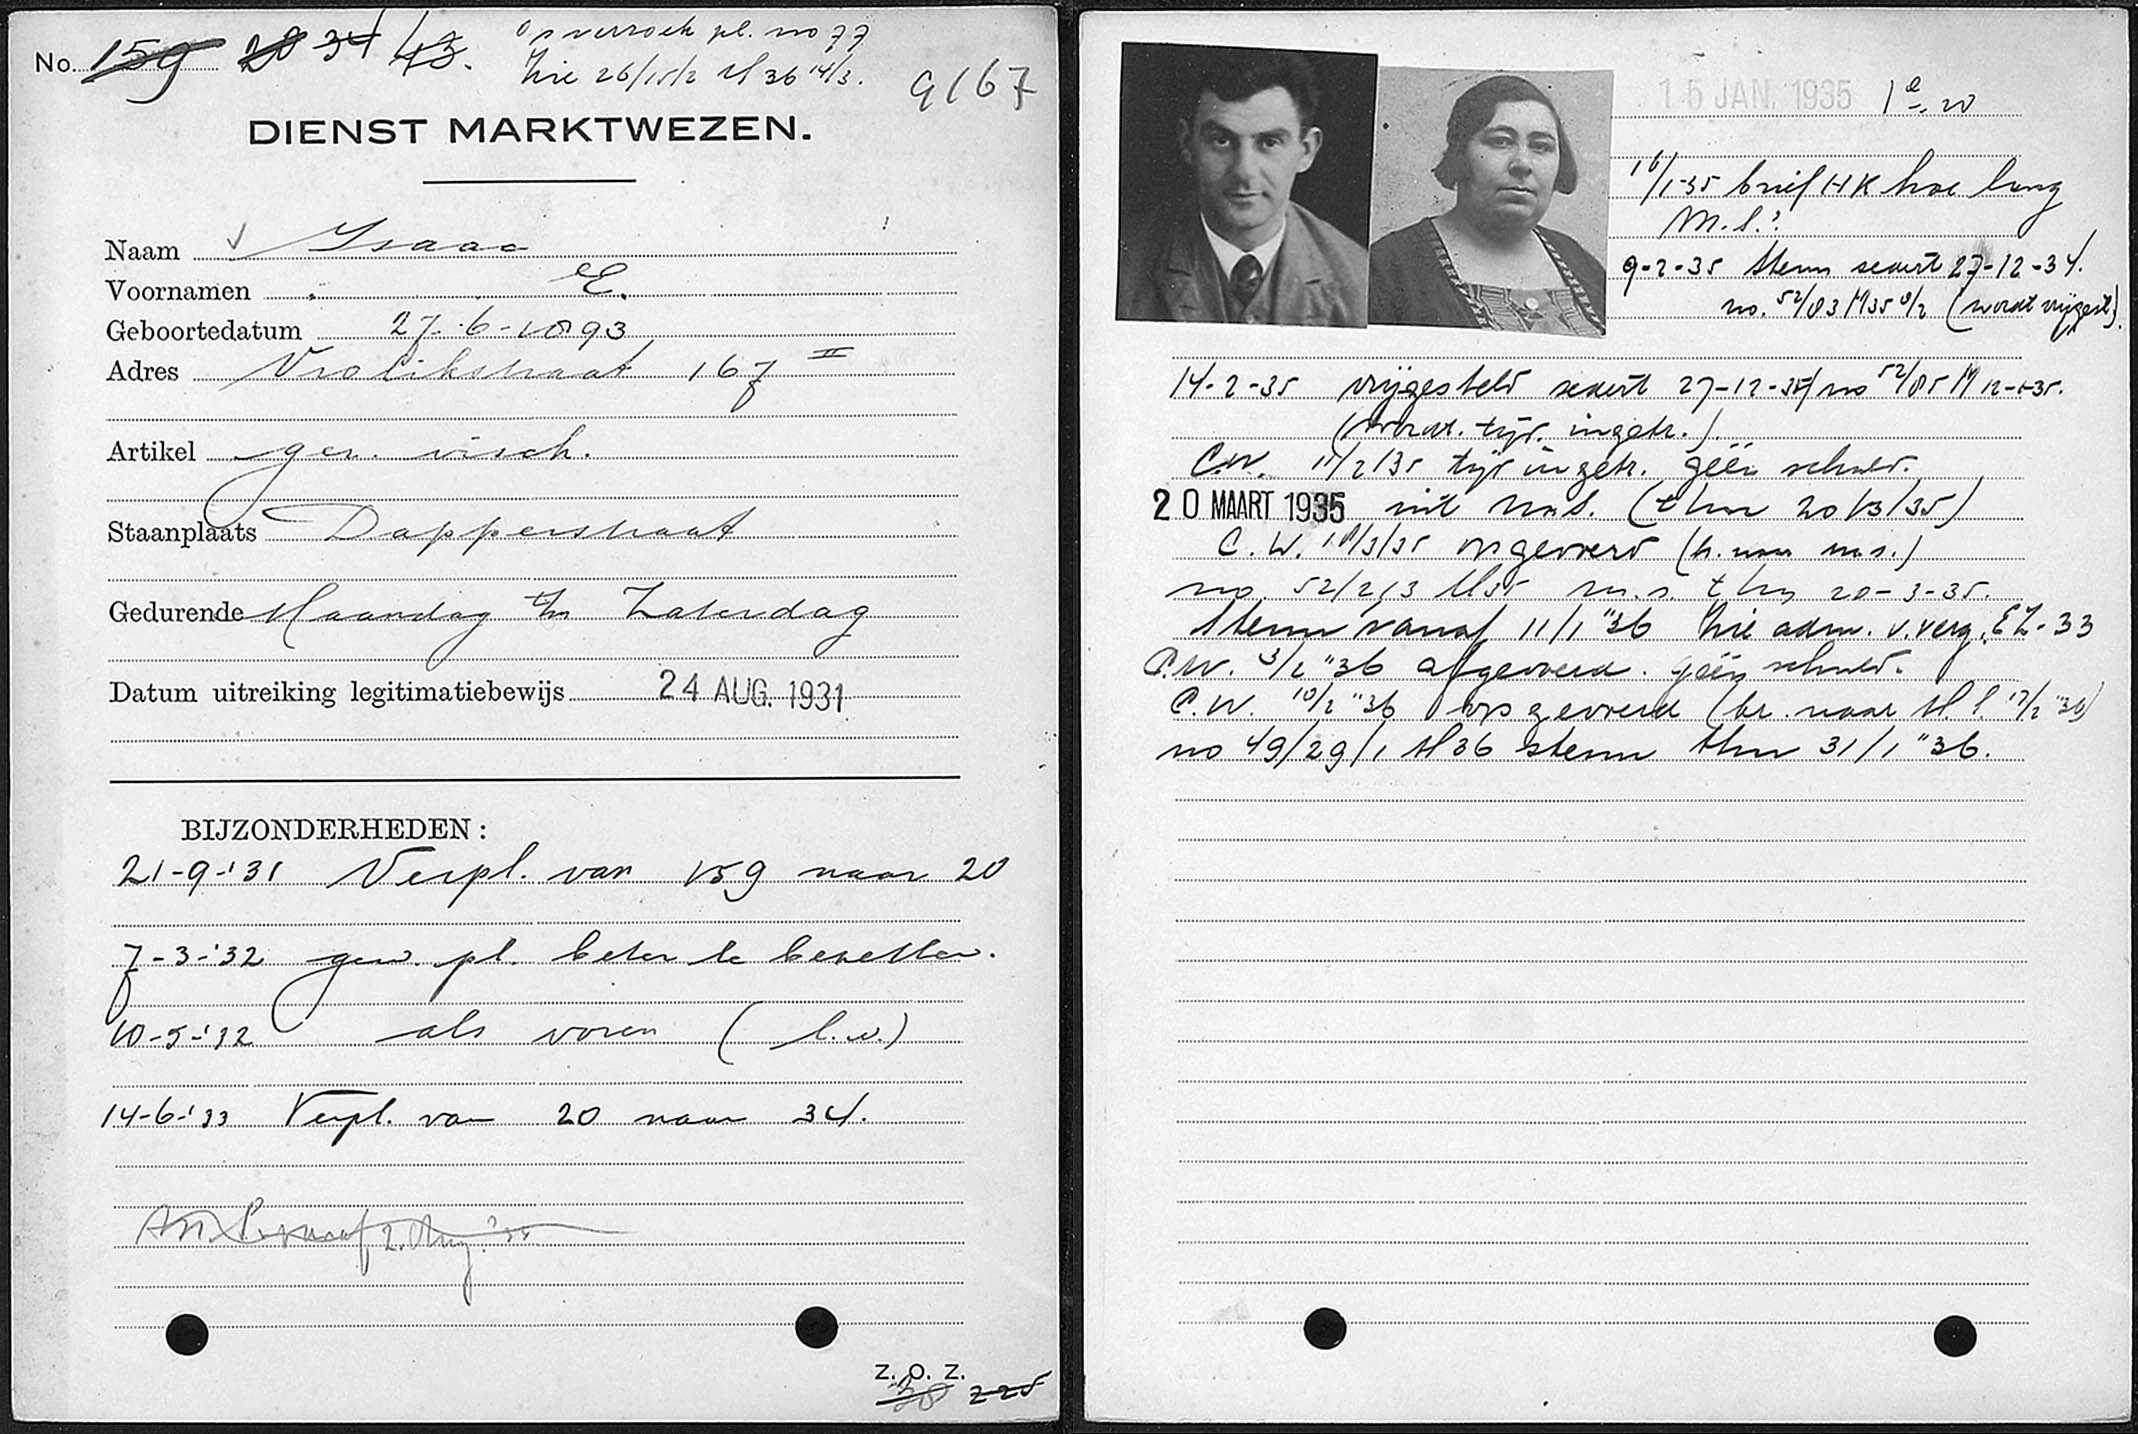 No. 159 20 34 43.
Op verzoek pl. no 77
Zie 26/15/2 M 36 14/3.
9167
DIENST MARKTWEZEN.
Naam Isaac
Voornamen E.
Geboortedatum 27-6-1893
Adres Vrolikstraat 167 II
Artikel ger. visch.
Staanplaats Dapperstraat
Gedurende Maandag t/m Zaterdag
Datum uitreiking legitimatiebewijs 24 AUG. 1931
BIJZONDERHEDEN:
21-9-'31 Verpl. van 159 naar 20
7-3-'32 gew. pl. beter te bezetten.
10-5-'32 als voren (l.w.)
14-6-'33 Verpl. van 20 naar 34.
2. Aug.
Z. O. Z.
15 JAN. 1935 1e 20
16/1-35 brief HK hoe lang
M.S.?
9-2-35 Steun sedert 27-12-34.
no. 52/83 M35 9/2 (wordt vrijgest.)
14-2-35 vrijgesteld sedert 27-12-34 no 52/85 M 12-2-35.
(word. tijd. ingetr.)
C.W. 11/2/35 tijd ingetr. géén schuld.
20 MAART 1935 uit M.S. (t/m 20/3/35)
C.W. 18/3/35 opgevoerd (br. naar m.s.)
no. 52/2,3 M35 m.s. t/m 20-3-35.
Steun vanaf 11/1 "36 Zie adm. v. verg. EZ-33
C.W. 3/2 "36 afgevoerd. géén schuld.
C.W. 10/2 "36 opgevoerd (br. naar M.S. 17/2 "36)
no 49/29/1 M36 steun t/m 31/1 "36.